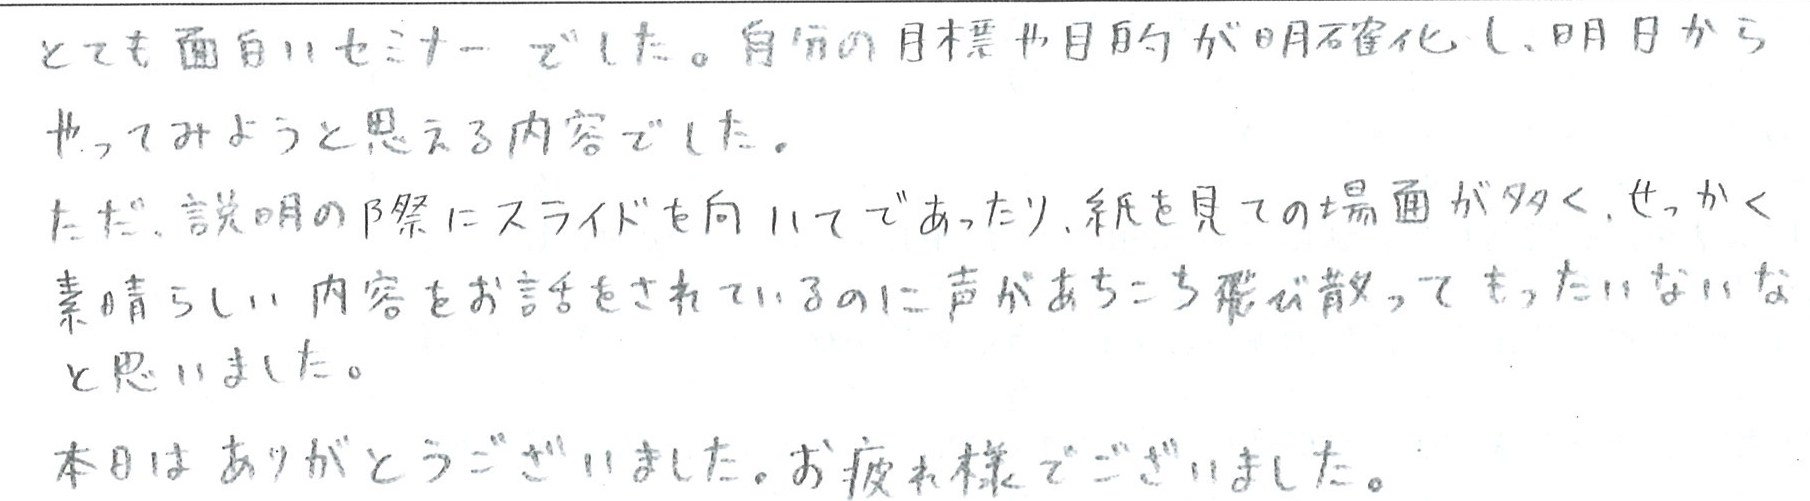 とても面白いセミナーでした。自分の目標や目的が明確化し、明日から
やってみようと思える内容でした。
ただ、説明の際にスライドを向いてであったり、紙を見ての場面が多く、せっかく
素晴らしい内容をお話をされているのに声があちこち飛び散ってもったいないな
と思いました。
本日はありがとうございました。お疲れ様でございました。